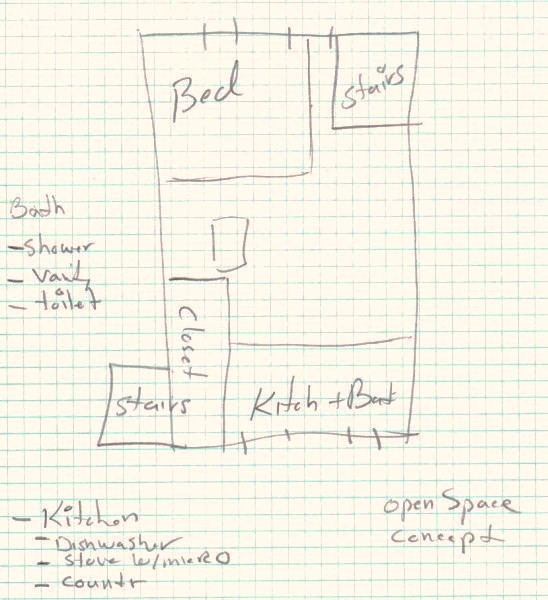 Bed
stairs
Bath
- Shower
- Vanity
- toilet
Closet
stairs
Kitch + Bat
- Kitchen
- Dishwasher
- Stove w/micro
- Countr
open Space
Concept